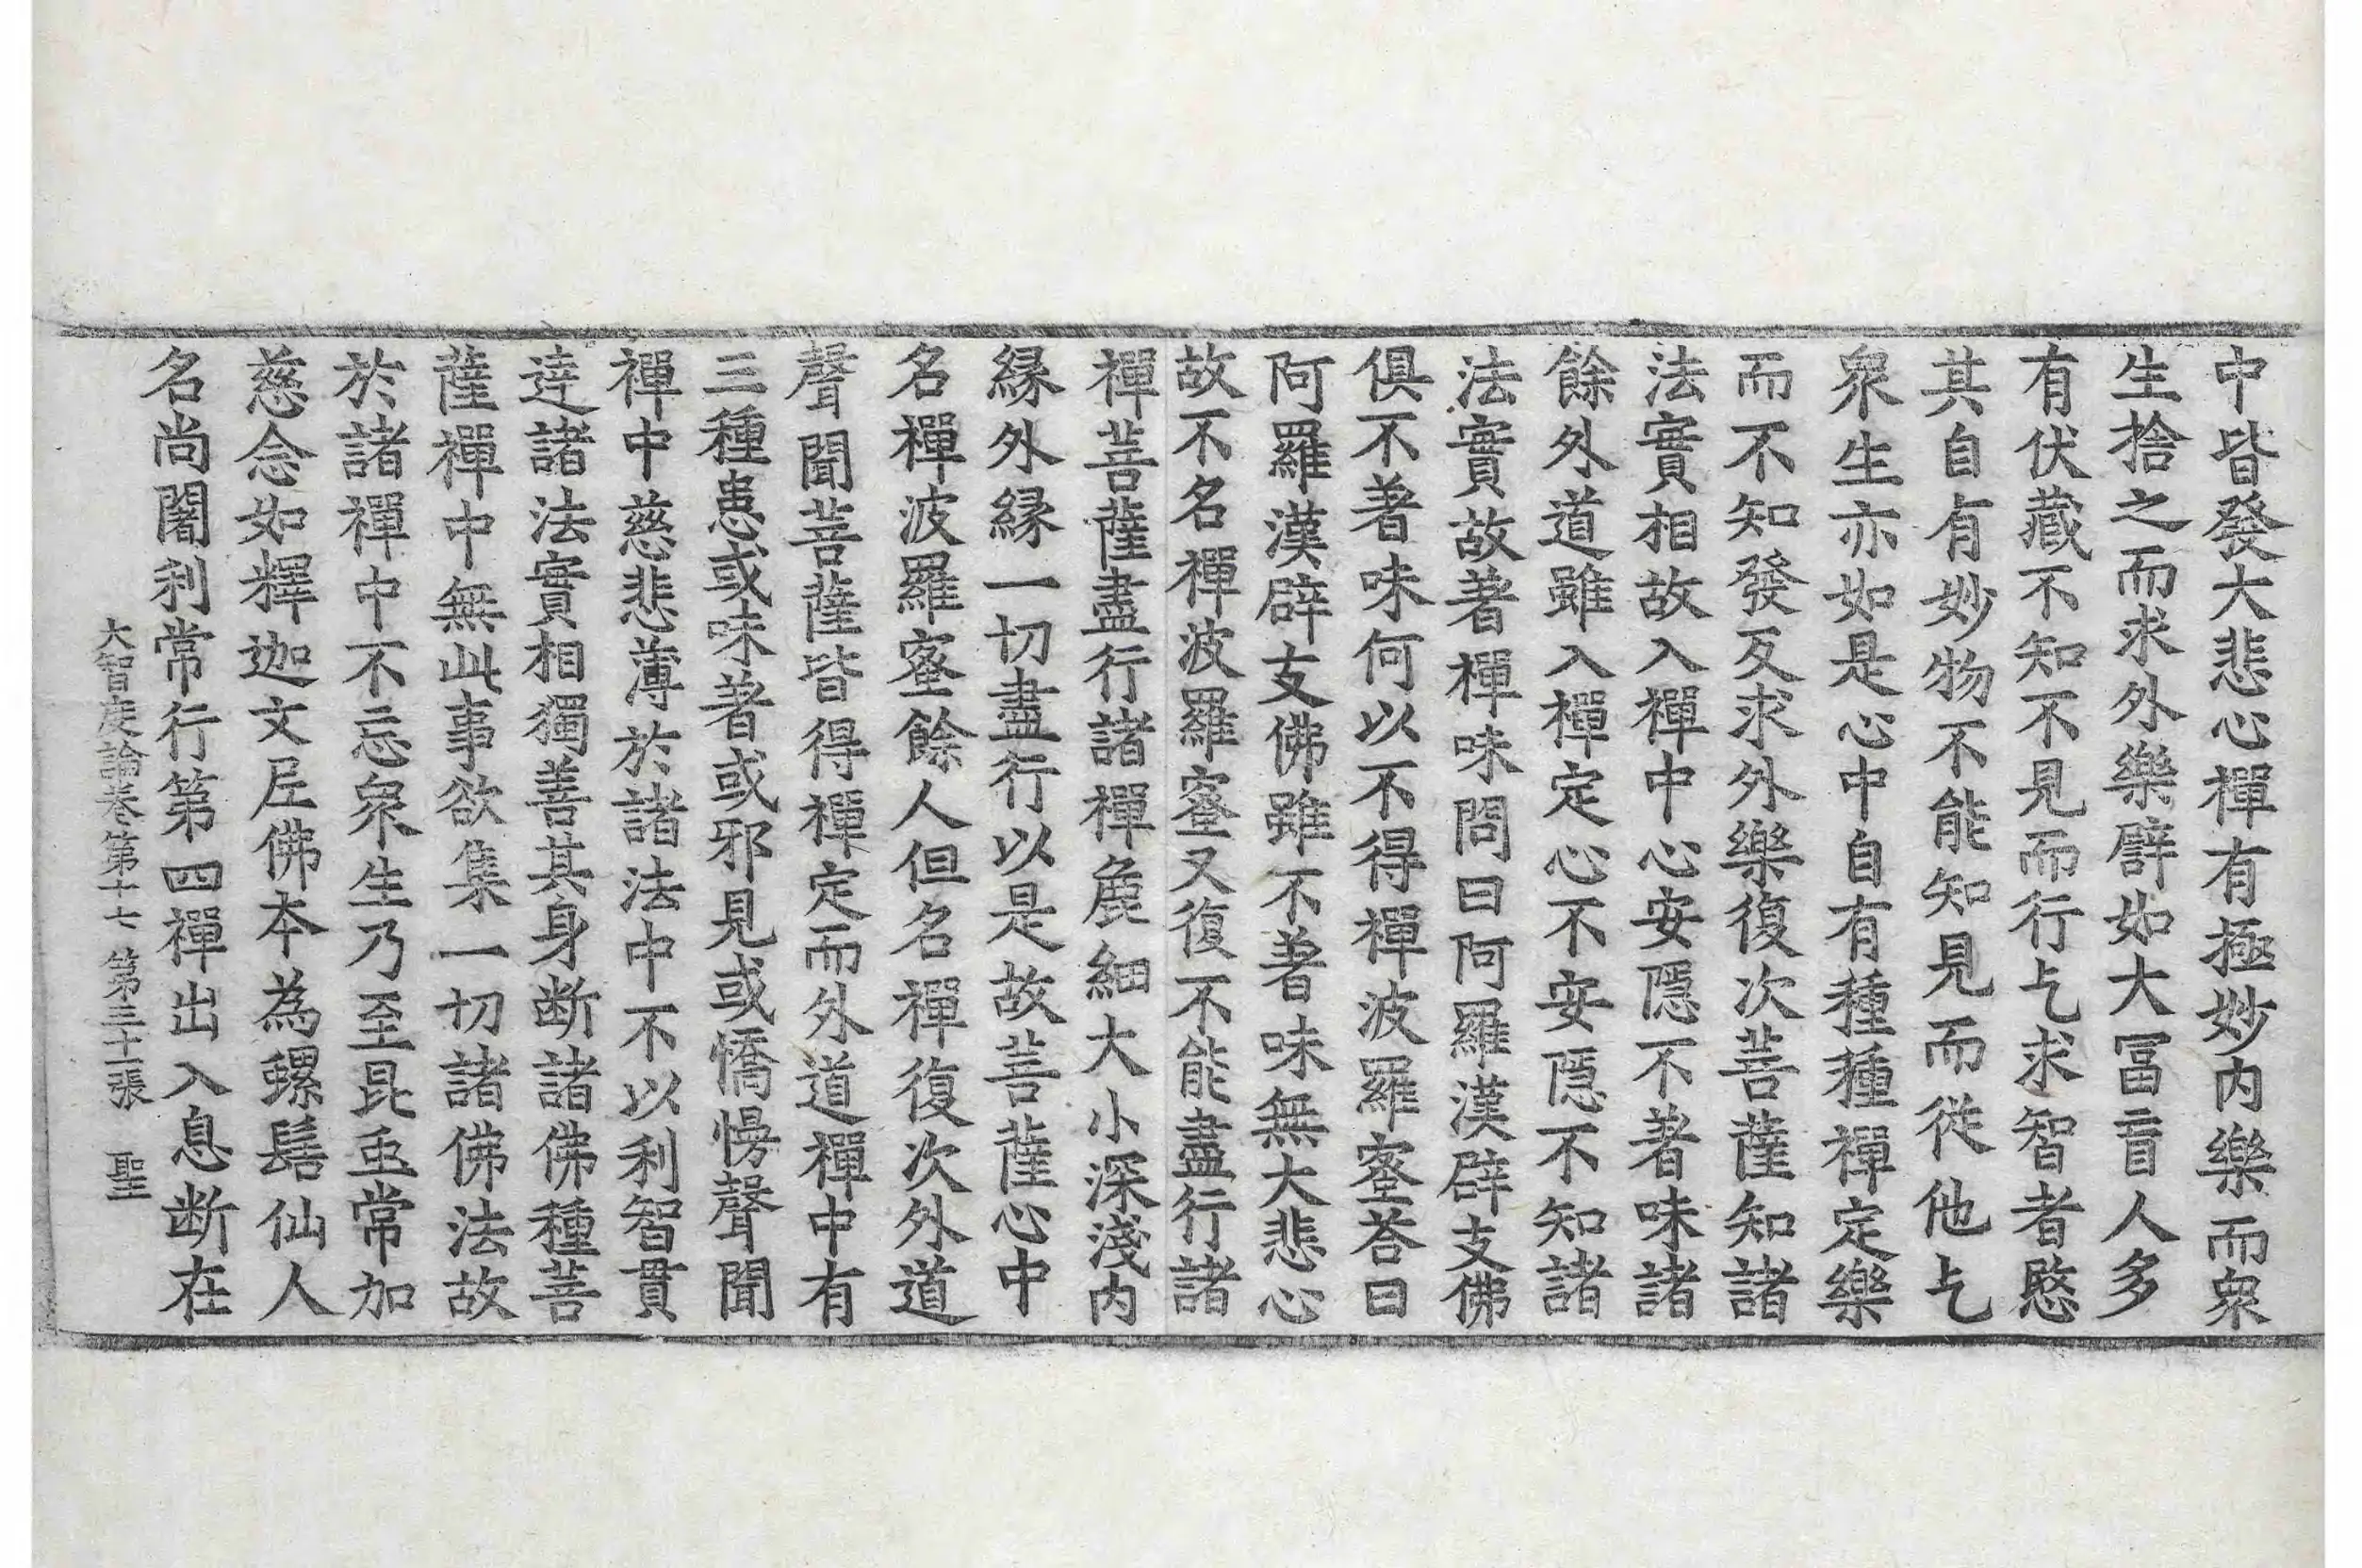 中皆發大悲心禪有極妙內樂而衆
生捨之而求外樂譬如大冨盲人多
有伏藏不知不見而行乞求智者愍
其自有妙物不能知見而從他乞
衆生亦如是心中自有種種禪定樂
而不知發反求外樂復次菩薩知諸
法實相故入禪中心安隱不著味諸
餘外道雖入禪定心不安隱不知諸
法實故著禪味問曰阿羅漢辟支佛
俱不著味何以不得禪波羅蜜荅曰
阿羅漢辟支佛雖不著味無大悲心
故不名禪波羅蜜又復不能盡行諸
禪菩薩盡行諸禪麁細大小深淺內
緣外緣一切盡行以是故菩薩心中
名禪波羅蜜餘人但名禪復次外道
聲聞菩薩皆得禪定而外道禪中有
三種患或味著或邪見或憍慢聲聞
禪中慈悲薄於諸法中不以利智貫
達諸法實相獨善其身断諸佛種菩
薩禪中無此事欲集一切諸佛法故
於諸禪中不忘衆生乃至昆虫常加
慈念如釋迦文尼佛本為螺髻仙人
名尚闍利常行第四禪出入息断在
大智度論卷第十七 第三十二張 聖